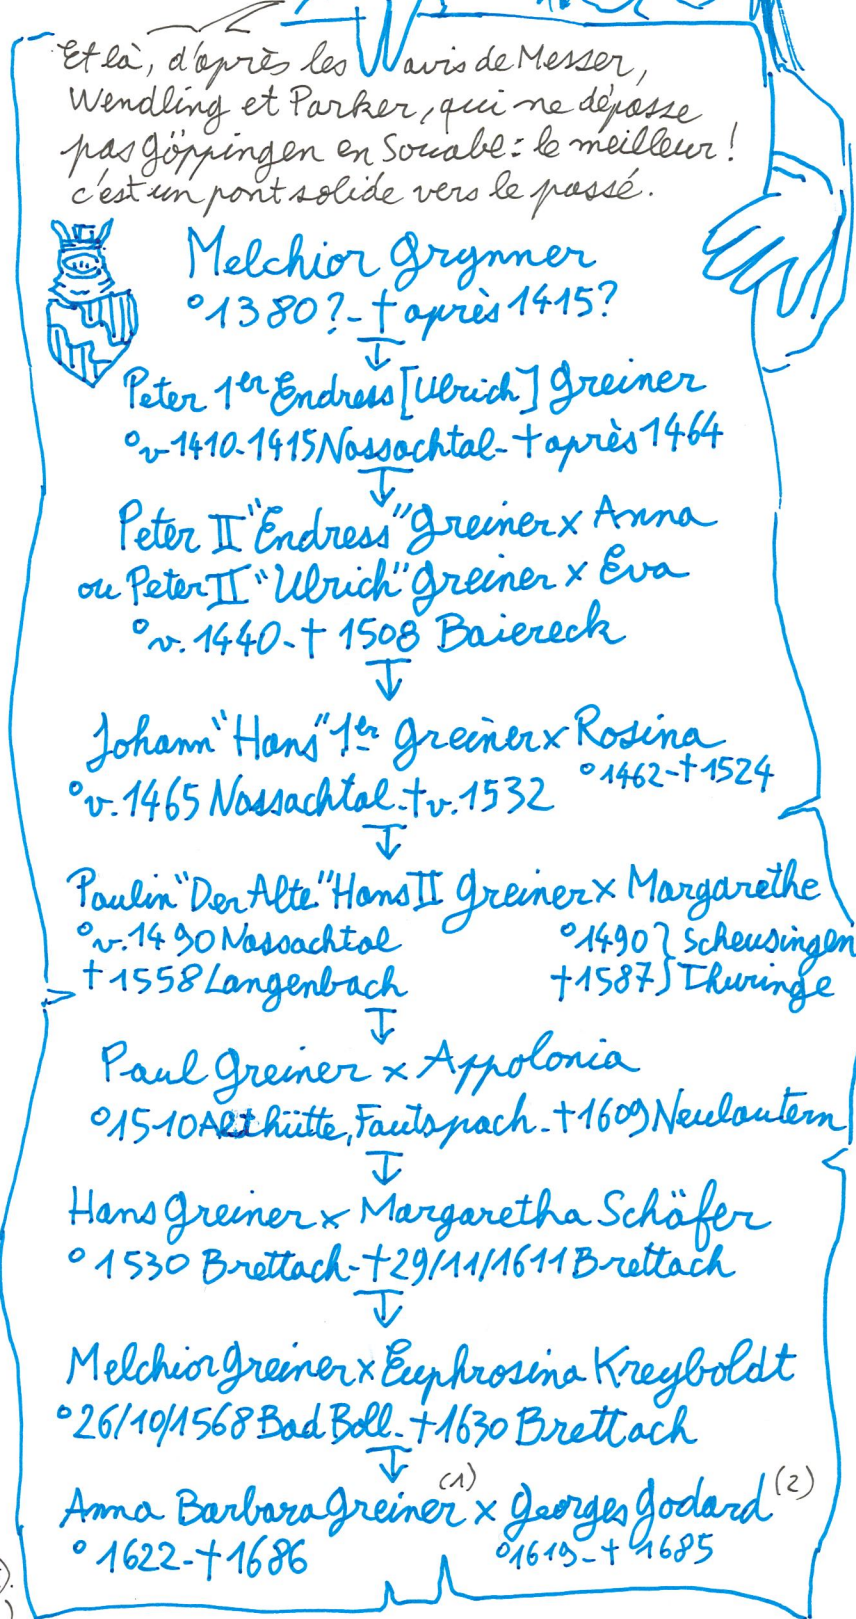 Et là, d'après les avis de Messer,
Wendling et Parker, qui ne dépasse
pas Göppingen en Souabe: le meilleur!
c'est un pont solide vers le passé.
Melchior Grynner
°1380?-†après 1415?
Peter 1er Endress [Ulrich] Greiner
°v.1410-1415 Nassachtal-†après 1464
Peter II "Endress" Greiner x Anna
ou Peter II "Ulrich" Greiner x Eva
°v.1440-†1508 Baiereck
Johann "Hans" 1er Greiner x Rosina
°1462-†1524
°v.1465 Nassachtal-†v.1532
Paulin "Der Alte" Hans II Greiner x Margarethe
°v.1490 Nassachtal °1490} Scheusingen
†1558 Langenbach †1587} Thuringe
Paul Greiner x Appolonia
°1510 Althütte, Fautspach-†1609 Neulautern
Hans Greiner x Margaretha Schäfer
°1530 Brettach-†29/11/1611 Brettach
Melchior Greiner x Euphrosina Kreyboldt
°26/10/1568 Bad Boll-†1630 Brettach
Anna Barbara Greiner (1) x Georges Godard (2)
°1622-†1686 °1619-†1685